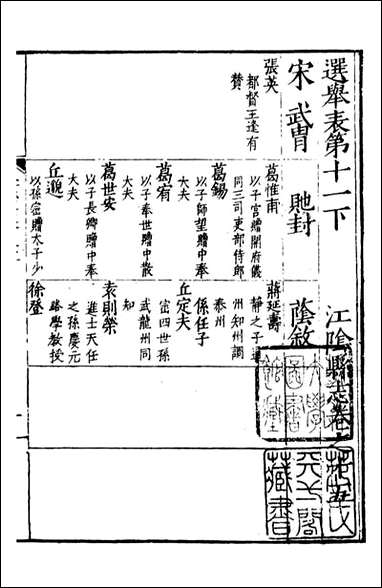 選舉表第十一下
江陰縣志卷之
宋 武胄 貤封 蔭敘
張英
都督王逢有
贊
葛惟甫
以子宮贈開府儀
同三司吏部侍郎
葛錫
以子師望贈中奉
大夫
葛宥
以子奉世贈中散
大夫
葛世安
以子長卿贈中奉
大夫
丘邈
以孫崈贈太子少
蔣延壽
靜之子
州知州調
泰州
係任子
丘定夫
崈四世孫
武龍州同
知
袁則榮
進士天任
之孫慶元
路學教授
徐登
大學
圖書
館藏
天一閣
藏書